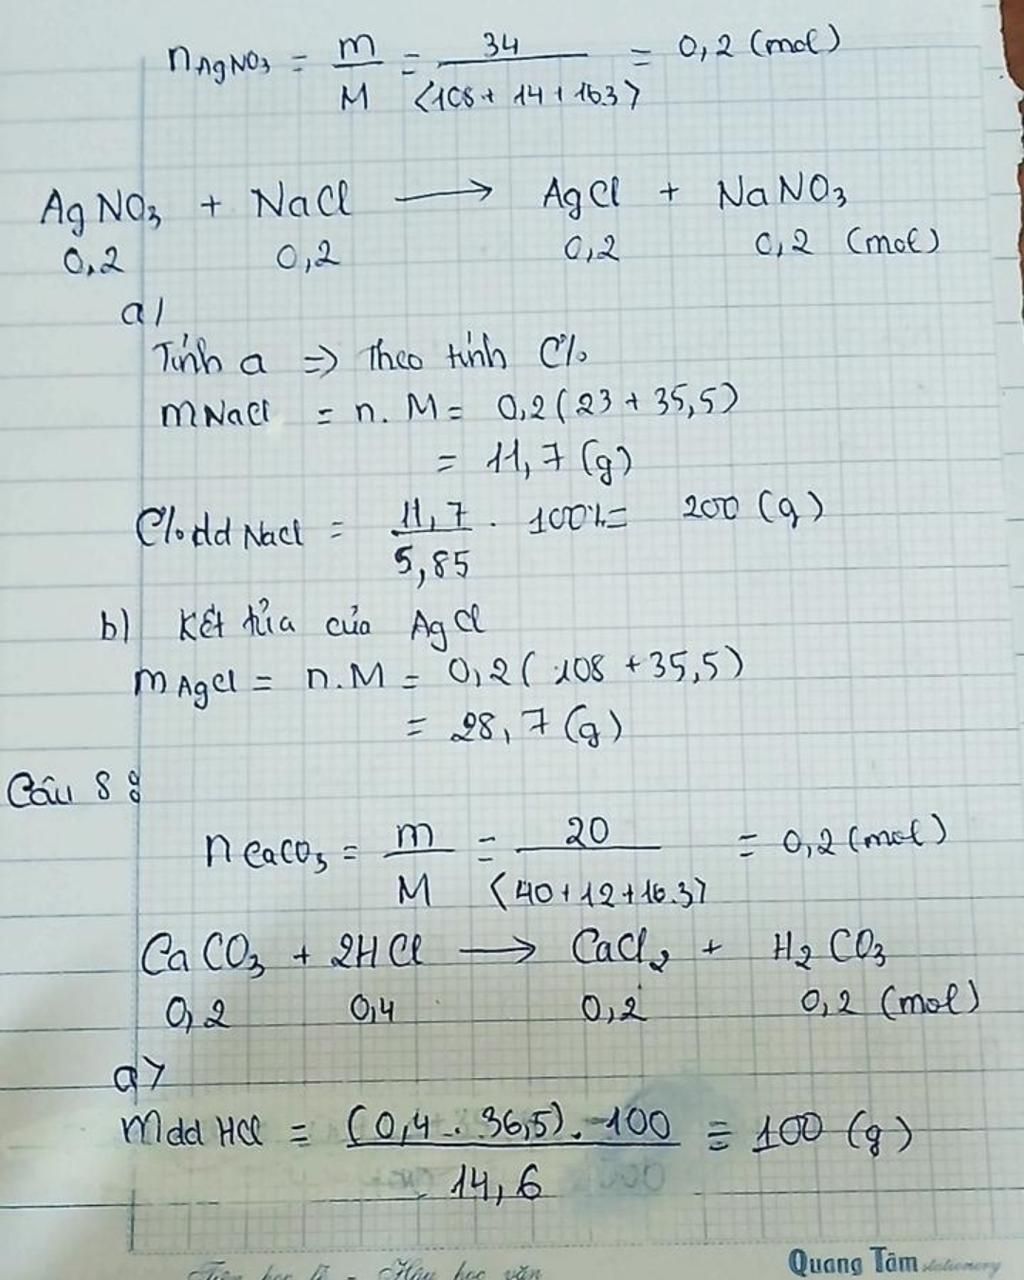 nAgNO3 = m/M = 34/(108 + 14 + 16.3) = 0,2 (mol)
AgNO3 + NaCl → AgCl + NaNO3
0,2 0,2 0,2 0,2 (mol)
a/
Tính a => Theo tính C%
mNaCl = n. M = 0,2 (23 + 35,5)
= 11,7 (g)
C% dd NaCl = 11,7/5,85 . 100% = 200 (g)
b) Kết tủa của AgCl
mAgCl = n.M = 0,2 ( 108 + 35,5)
= 28,7 (g)
Câu 8 :
nCaCO3 = m/M = 20/(40+12+16.3) = 0,2 (mol)
CaCO3 + 2HCl → CaCl2 + H2CO3
0,2 0,4 0,2 0,2 (mol)
a>
mdd HCl = (0,4 . 36,5) . 100/14,6 = 100 (g)
Tiên học lễ - Hậu học văn
Quang Tâm stationery